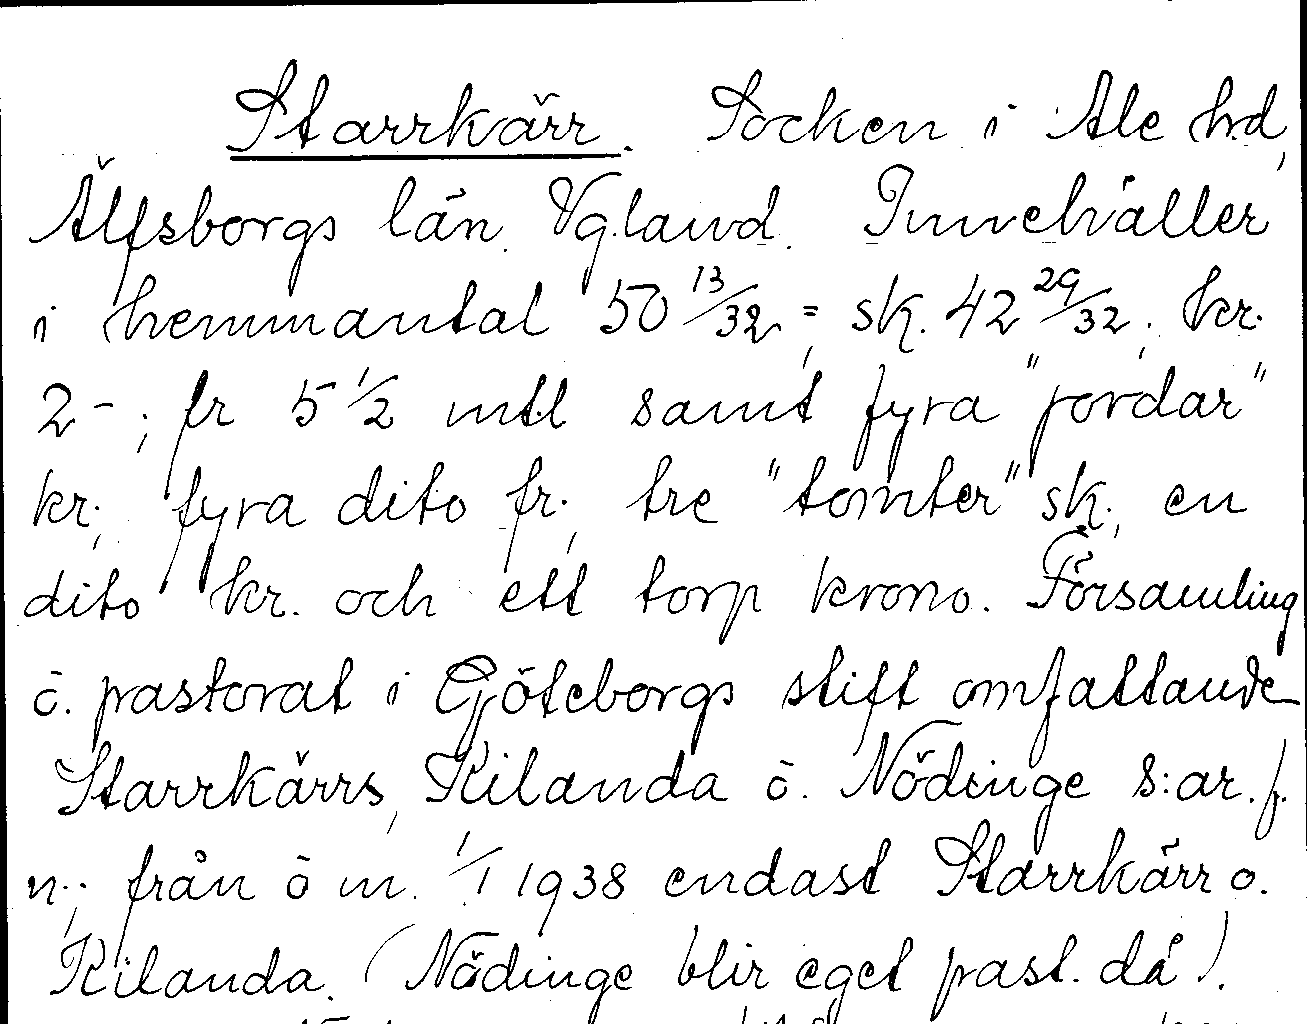 Starrkärr. Socken i Ale hd,
Älfsborgs län. Vg.land. Innehåller
i hemmantal 50 13/32, = sk. 42 29/32; kr.
2-; fr 5 1/2 mtl samt fyra "jordar"
kr., fyra dito fr., tre "tomter" sk., en
dito kr. och ett torp krono. Församling
o. pastorat i Göteborgs stift omfattande
Starrkärrs, Kilanda o. Nödinge s:ar. f.
n.; från o m. 1/1 1938 endast Starrkärr o.
Kilanda. (Nödinge blir eget past. då).